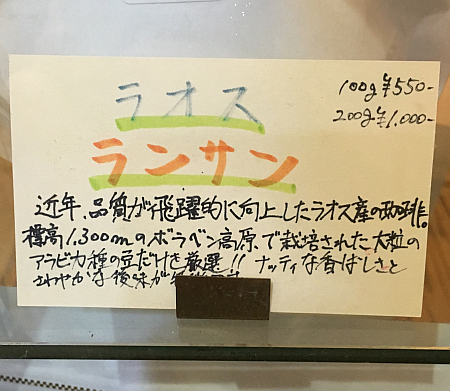 ラオス
100g ¥550-
200g ¥1,000-
ランサン
近年、品質が飛躍的に向上したラオス産の珈琲。
標高1,300mのボラベン高原で栽培された大粒の
アラビカ種の豆だけを厳選!! ナッティな香ばしさと
さわやかな後味が